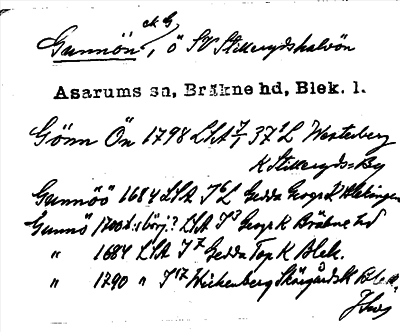 ek G
Gunnön, ö SV Stillerydshalvön
Asarums sn, Bräkne hd, Blek. l.
Gönn Ön 1798 LSA 37 L Westerberg
K Stilleryds By
Gunnöö 1684 LSA J L Gedda Geogr K Blekingen
Gunnö 1700 d:s börj.? LSA J Geogr K Bräkne hd
" 1684 LSA J7 Gedda Top K Blek.
" 1790 " J17 Wickenberg Skärgårds K Blek.